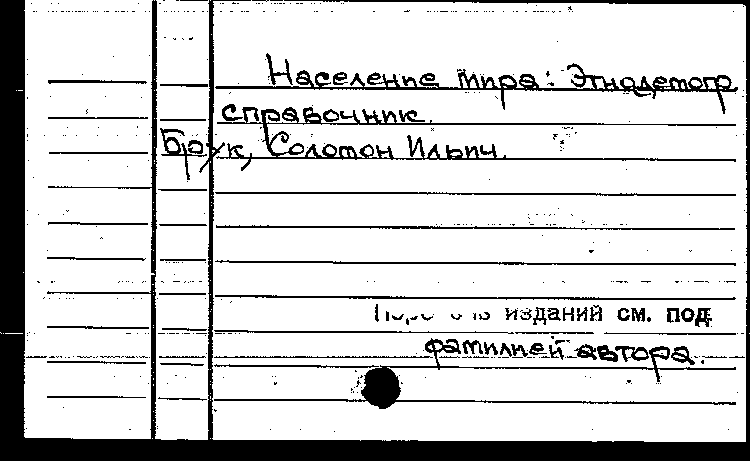 Население мира: Этнодемогр.
справочник.
Брук, Соломон Ильич.
изданий см. под
фамилией автора.